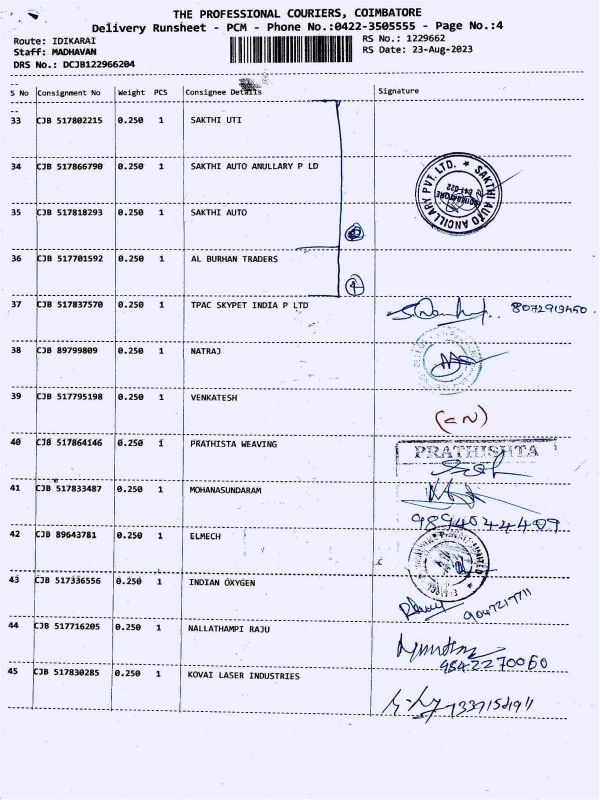 THE PROFESSIONAL COURIERS, COIMBATORE
Delivery Runsheet - PCM - Phone No.:0422-3505555 - Page No.:4
Route: IDIKARAI RS No.: 1229662
Staff: MADHAVAN RS Date: 23-Aug-2023
DRS No.: DCJB122966204
S No Consignment No Weight PCS Consignee Details Signature
33 CJB 517802215 0.250 1 SAKTHI UTI
34 CJB 517866790 0.250 1 SAKTHI AUTO ANULLARY P LD
SAKTHI AUTO ANCILLARY PVT. LTD. ★
COIMBATORE
641-022
35 CJB 517818293 0.250 1 SAKTHI AUTO
36 CJB 517701592 0.250 1 AL BURHAN TRADERS
37 CJB 517837570 0.250 1 TPAC SKYPET INDIA P LTD
38 CJB 89799809 0.250 1 NATRAJ
39 CJB 517795198 0.250 1 VENKATESH
(CN)
40 CJB 517864146 0.250 1 PRATHISTA WEAVING
PRATHISHTA
41 CJB 517833487 0.250 1 MOHANASUNDARAM
9894044409
42 CJB 89643781 0.250 1 ELMECH
43 CJB 517336556 0.250 1 INDIAN OXYGEN
44 CJB 517716205 0.250 1 NALLATHAMPI RAJU
9842270060
45 CJB 517830285 0.250 1 KOVAI LASER INDUSTRIES